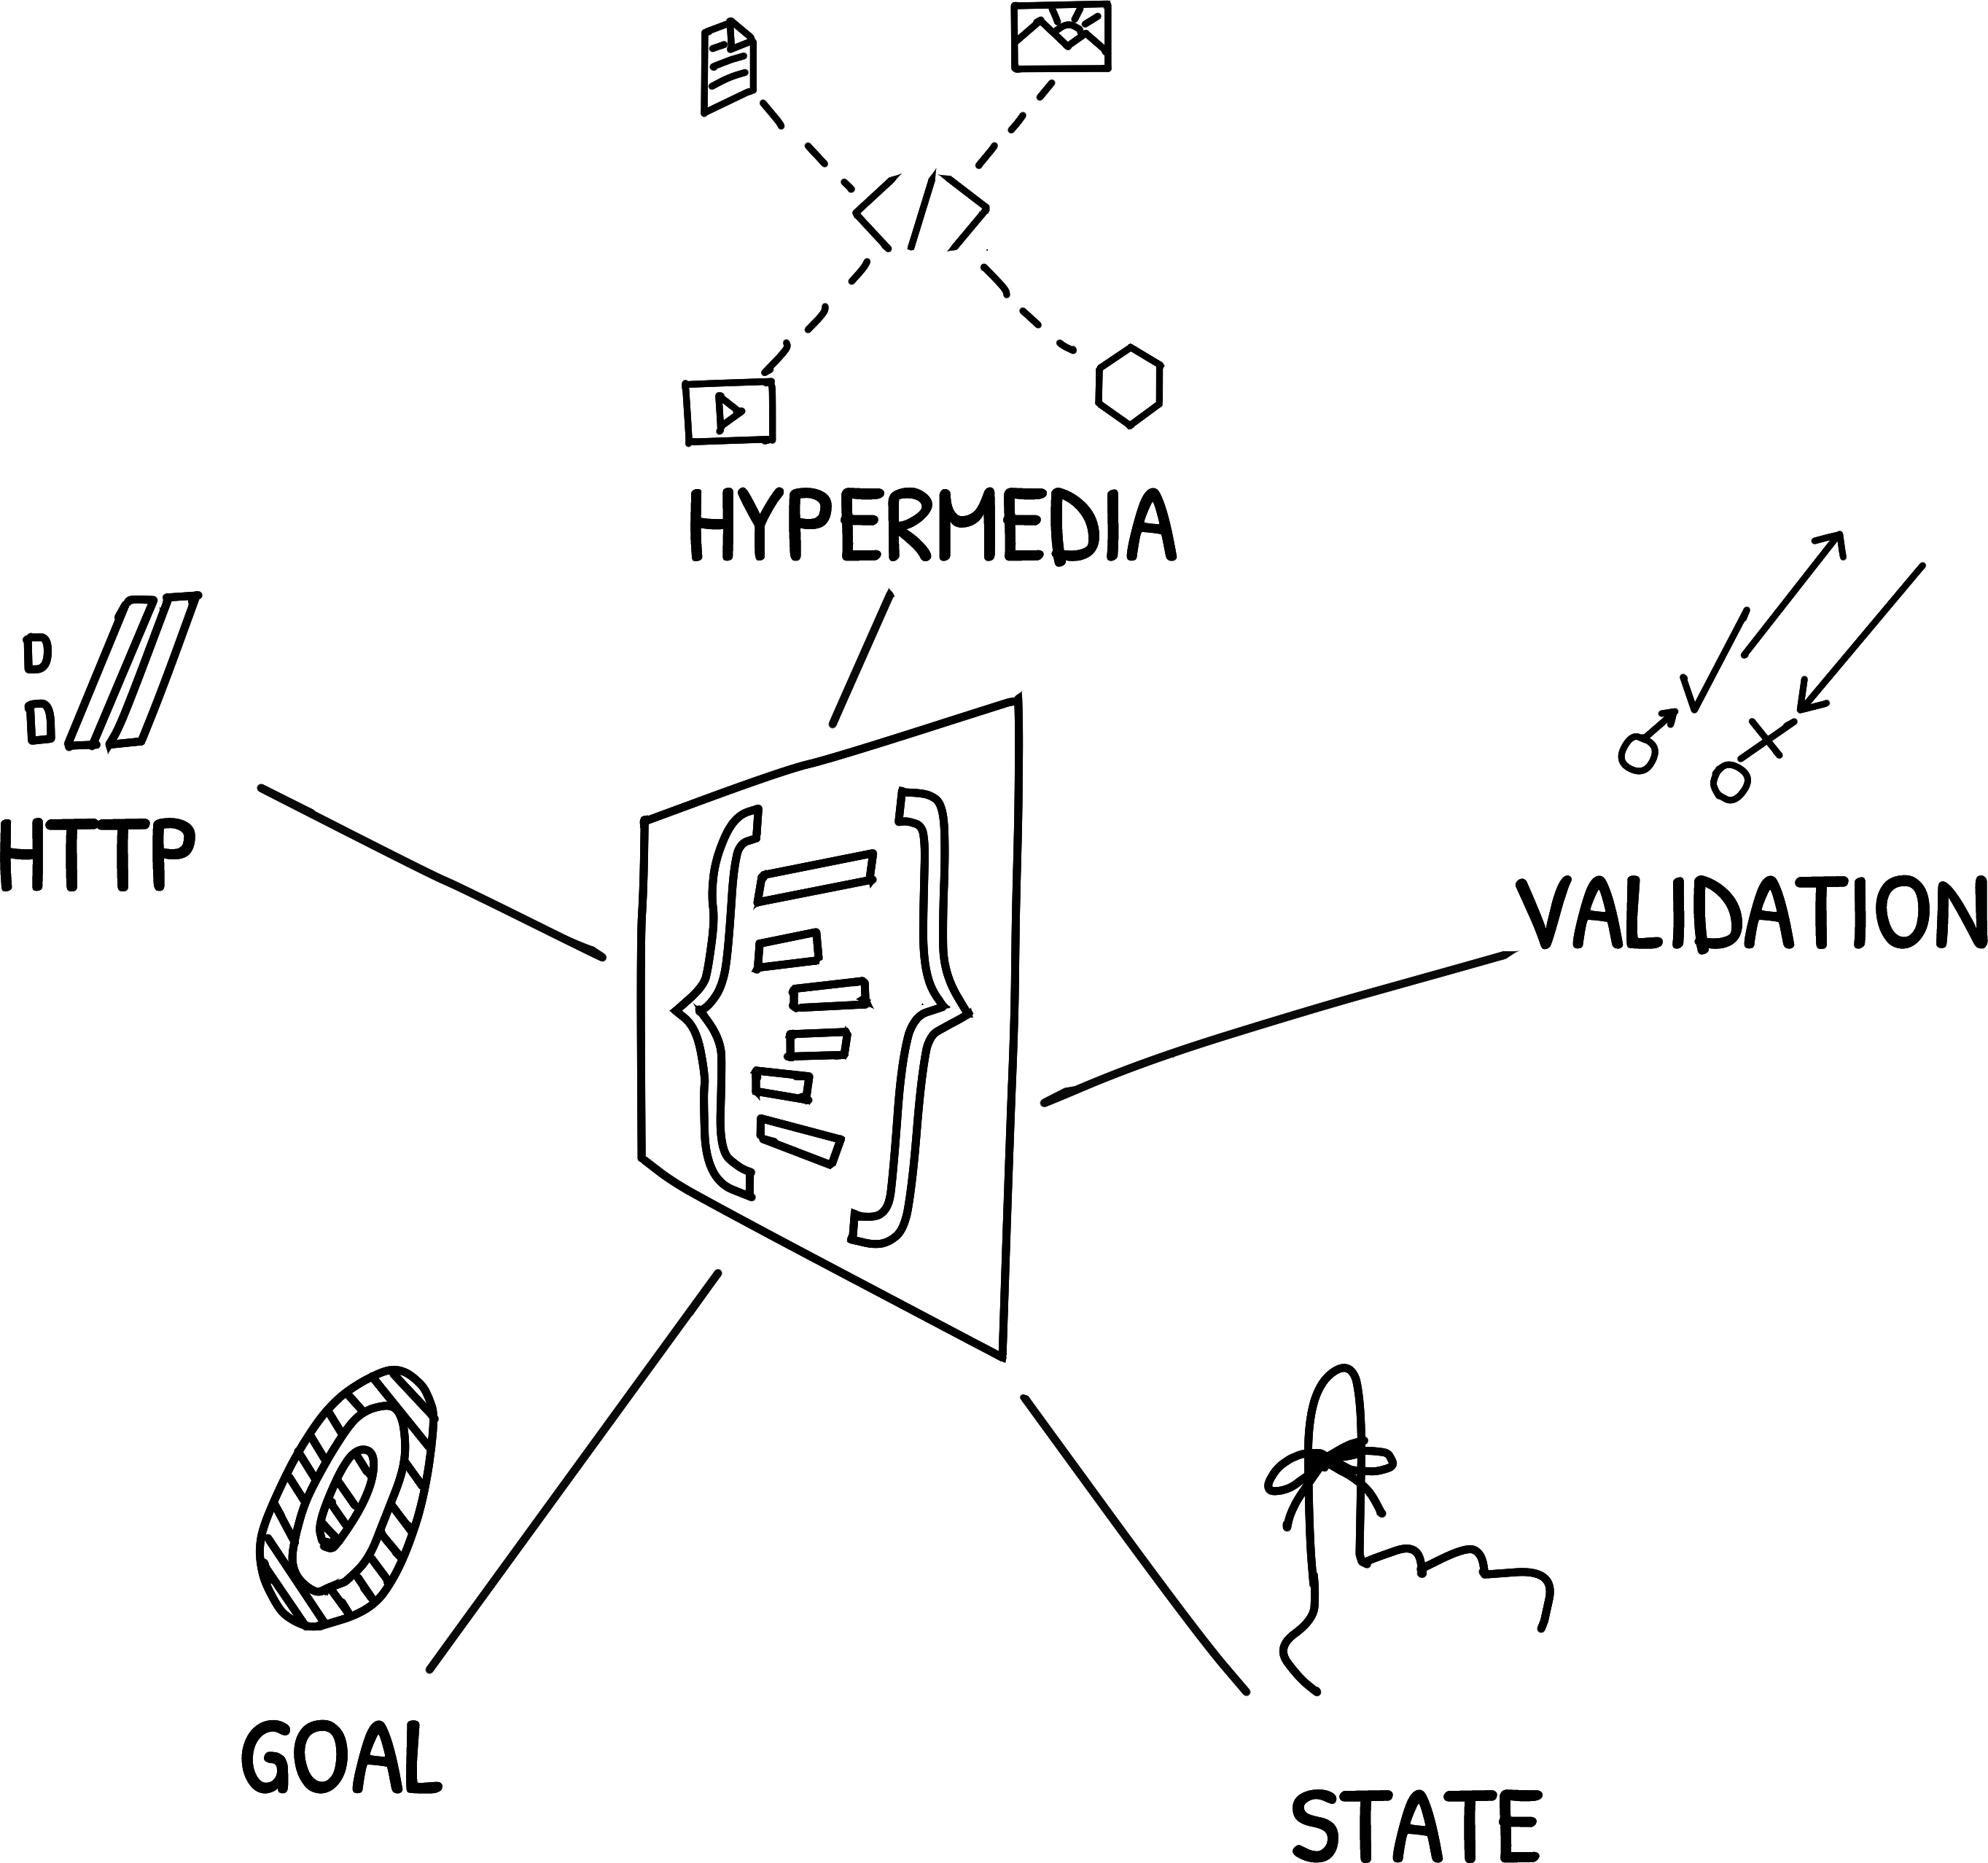 HYPERMEDIA
HTTP
VALIDATION
GOAL
STATE